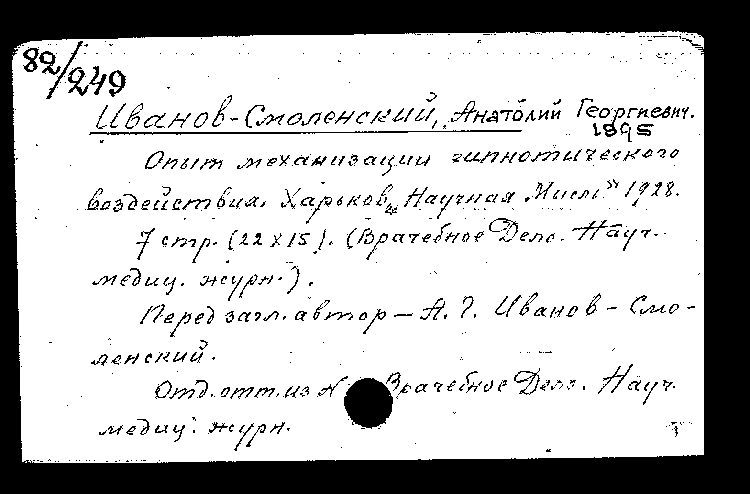 82/249
Иванов-Смоленский, Анатолий Георгиевич.
1895
Опыт механизации гипнотического
воздействия. Харьков, „Научная Мысль" 1928.
7 стр. (22 x 15). (Врачебное Дело. Науч.
медиц. журн.).
Перед загл. автор — А. Г. Иванов - Смо-
ленский.
Отд. отт. из Врачебное Дело. Науч.
медиц. журн.